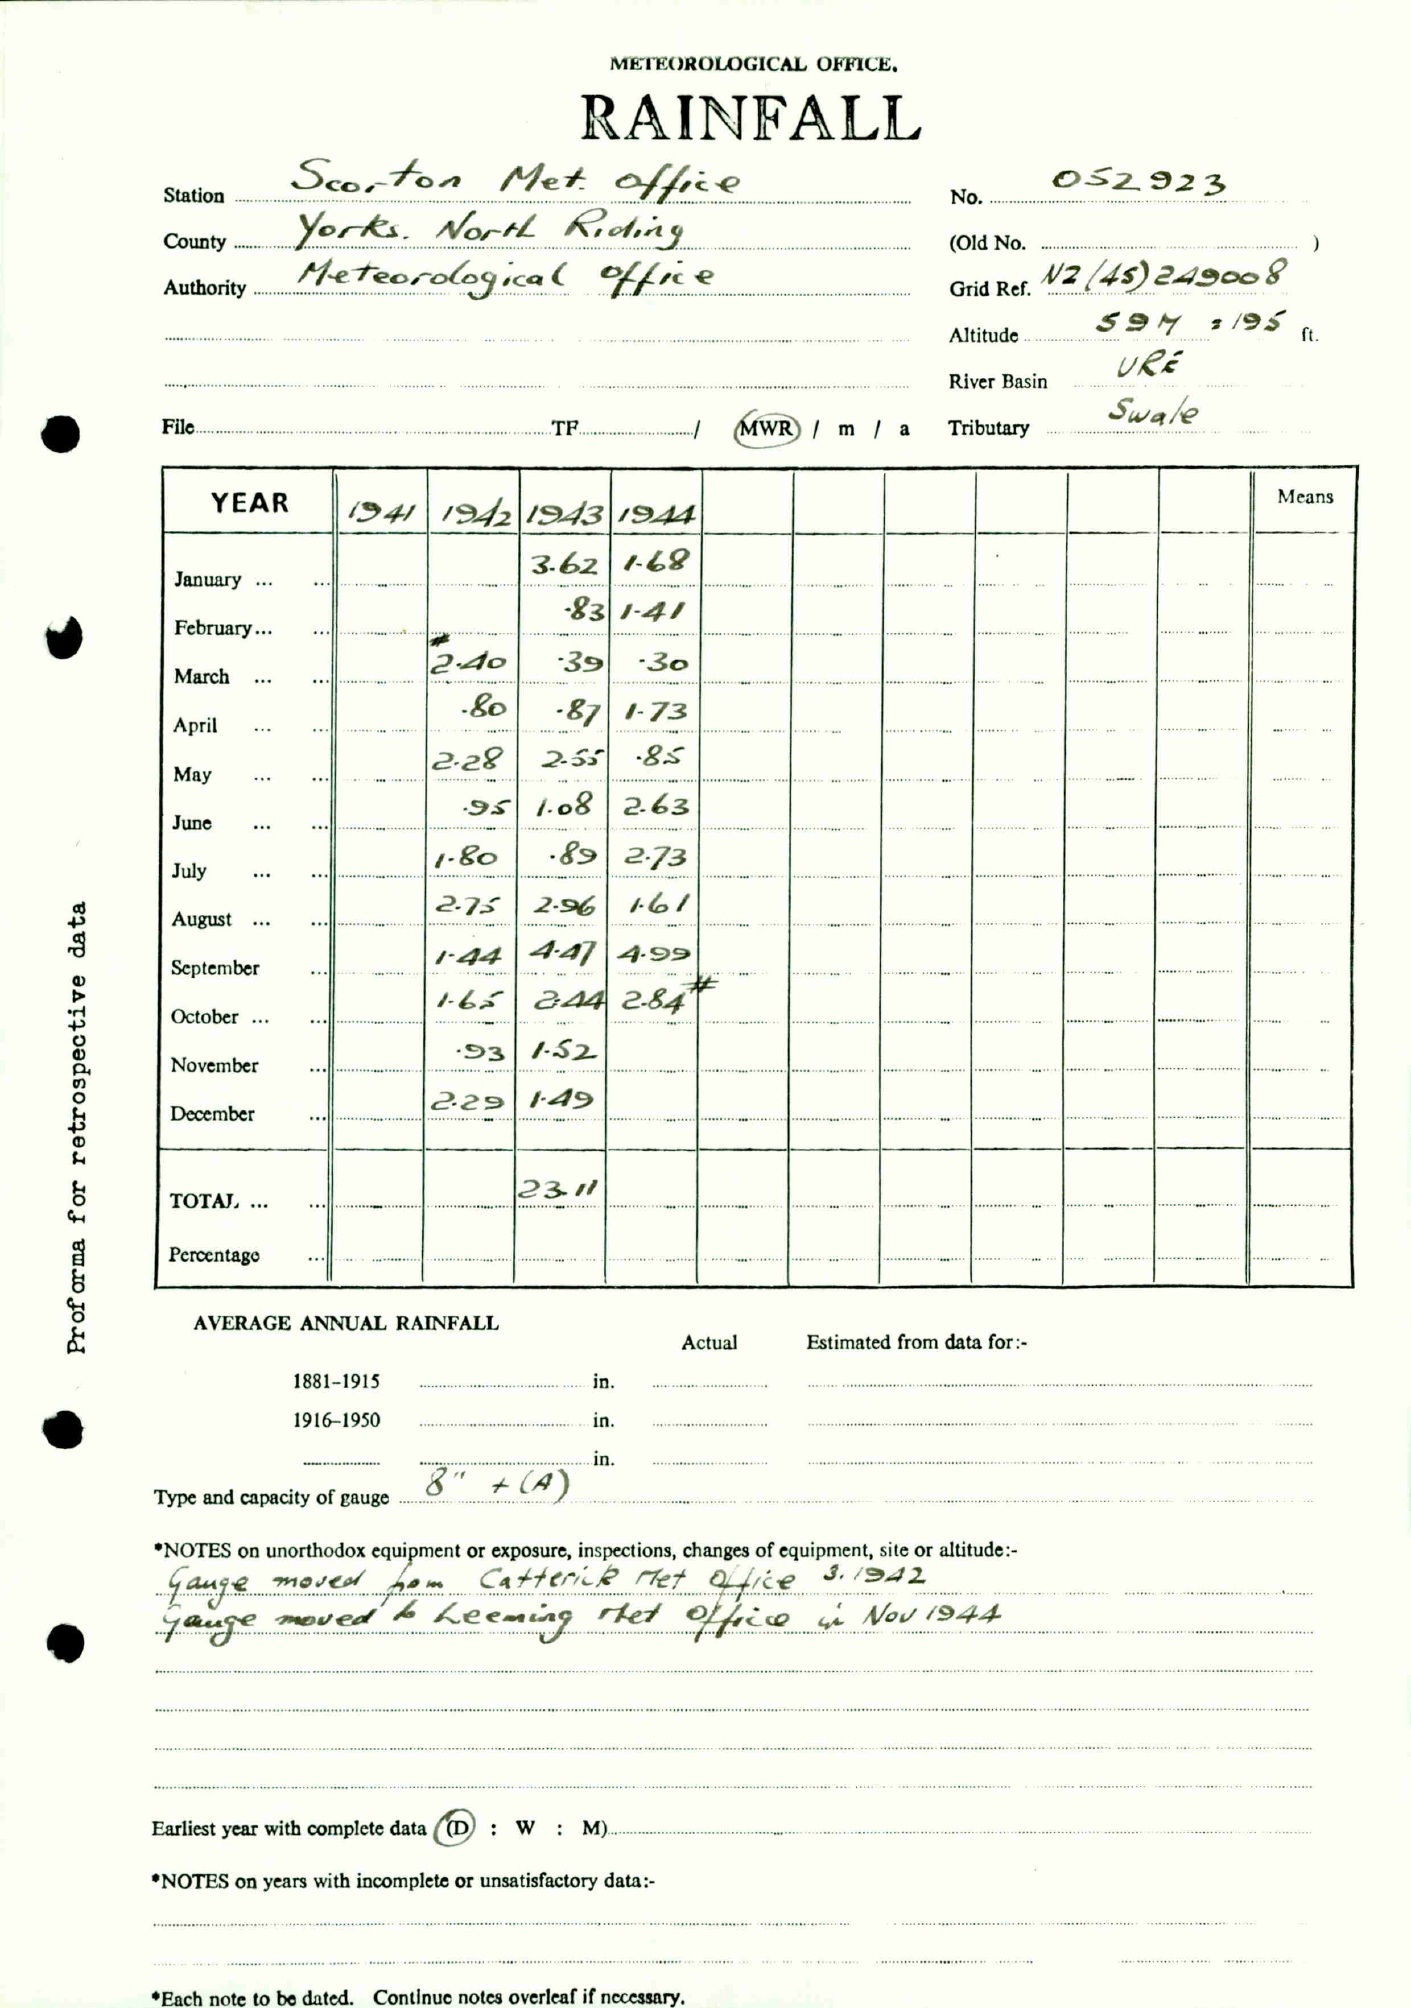 METEOROLOGICAL OFFICE.
RAINFALL
Station Scorton Met. Office No. 052923
County Yorks. North Riding (Old No. )
Authority Meteorological Office Grid Ref. NZ (45) 249008
Altitude 59M = 195 ft.
River Basin URE
File TF / MWR / m / a Tributary Swale
YEAR 1941 1942 1943 1944 Means
January ... ... 3.62 1.68
February... ... .83 1.41
March ... ... # 2.40 .39 .30
April ... ... .80 .87 1.73
May ... ... 2.28 2.55 .85
June ... ... .95 1.08 2.63
July ... ... 1.80 .89 2.73
August ... ... 2.75 2.96 1.61
September ... 1.44 4.47 4.99
October ... ... 1.65 2.44 2.84 #
November ... .93 1.52
December ... 2.29 1.49
TOTAL ... ... 23.11
Percentage ...
Proforma for retrospective data
AVERAGE ANNUAL RAINFALL
Actual Estimated from data for:-
1881-1915 in.
1916-1950 in.
in.
Type and capacity of gauge 8" + (A)
*NOTES on unorthodox equipment or exposure, inspections, changes of equipment, site or altitude:-
Gauge moved from Catterick Met Office 3.1942
Gauge moved to Leeming Met Office in Nov 1944
Earliest year with complete data (D : W : M)
*NOTES on years with incomplete or unsatisfactory data:-
*Each note to be dated. Continue notes overleaf if necessary.